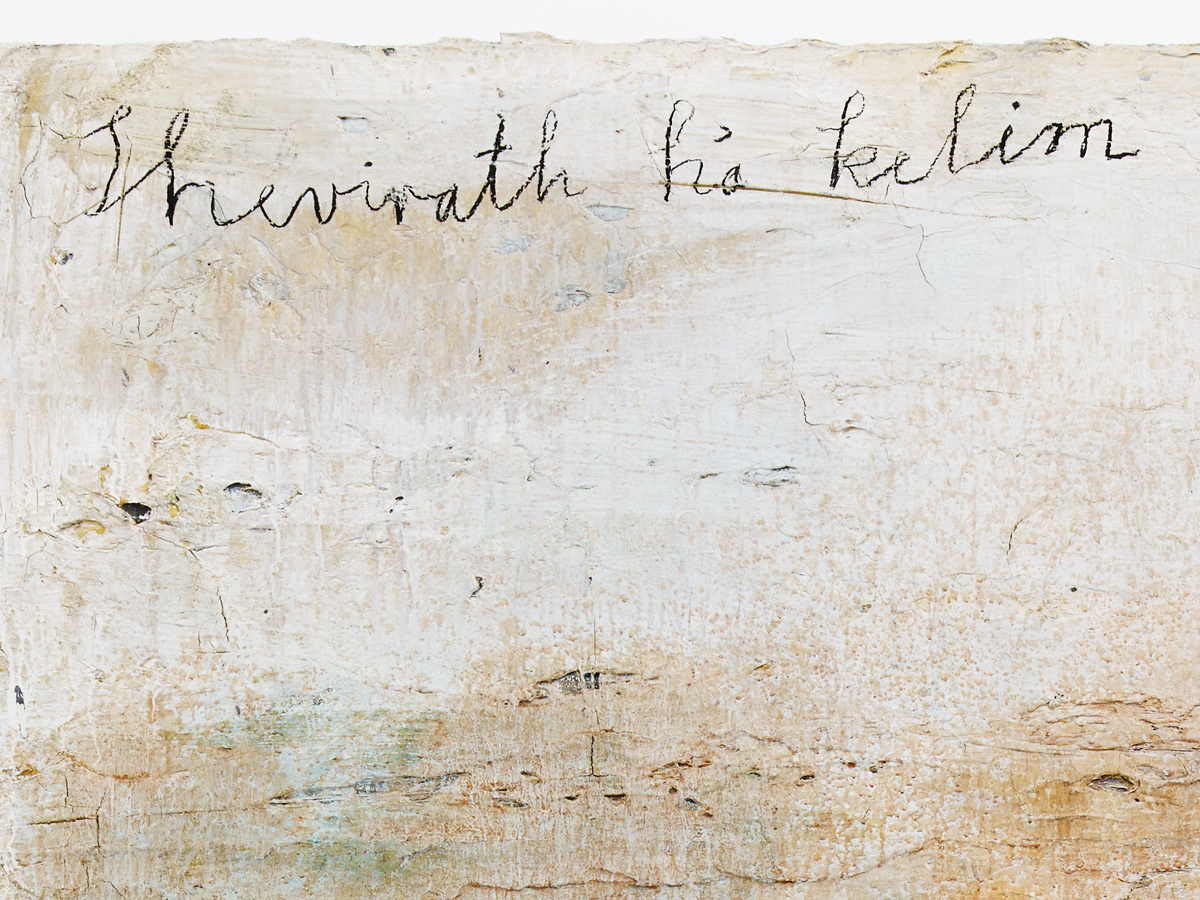 Shevirath ha kelim